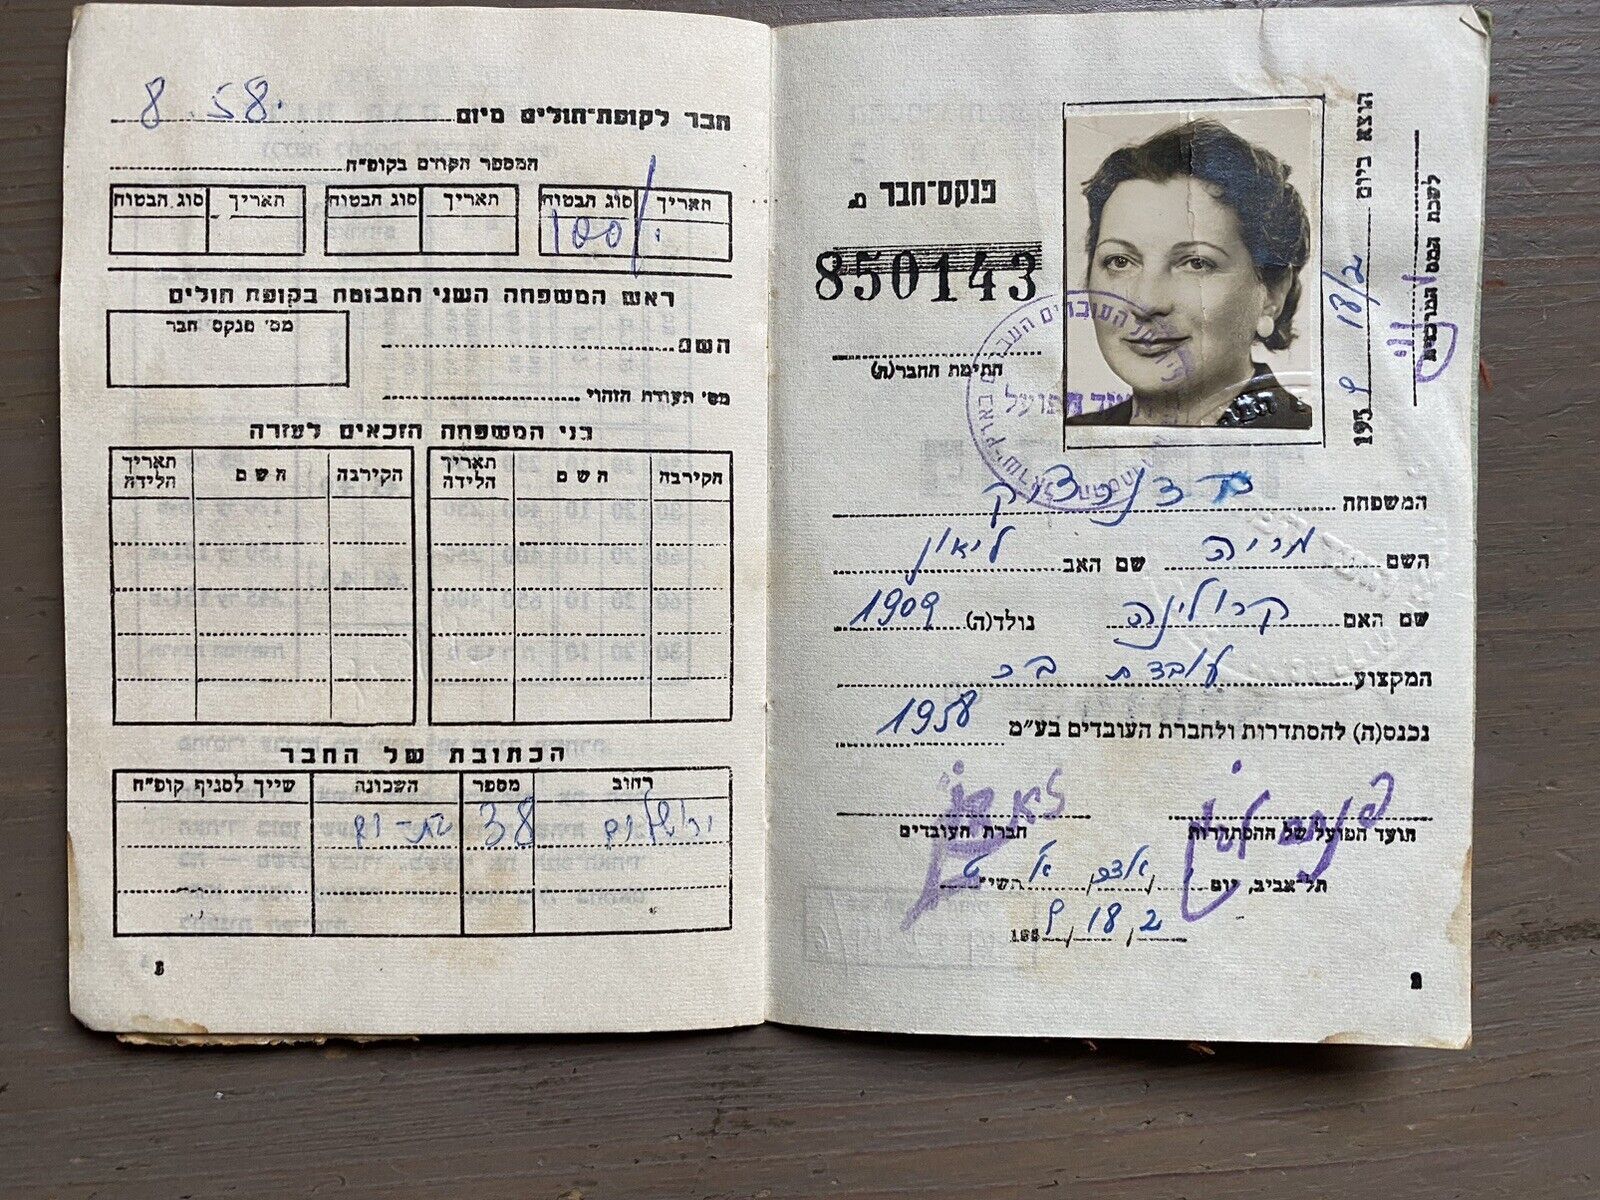 פנקס-חבר מ.
850143
חתימת החבר(ה)
הוצא ביום 18/2 1959
לשכת המס המרכזית
הועד הפועל
המשפחה
השם מריה שם האב ליאון
שם האם קרולינה נולד(ה) 1909
המקצוע עובדת בכ
נכנס(ה) להסתדרות ולחברת העובדים בע"מ 1958
הועד הפועל של ההסתדרות
חברת העובדים
תל-אביב, יום
השי"ט
18.2 1959
2
חבר לקופת-חולים מיום 8.58
המספר הקודם בקופ"ח
תאריך סוג הבטוח תאריך סוג הבטוח תאריך סוג הבטוח
100%
ראש המשפחה השני המבוטח בקופת חולים
השם
מס' פנקס חבר
מס' תעודת הזהוי
בני המשפחה הזכאים לעזרה
הקירבה השם תאריך הלידה הקירבה השם תאריך הלידה
הכתובת של החבר
רחוב מספר השכונה שייך לסניף קופ"ח
ירושלים 38 בת-ים
3